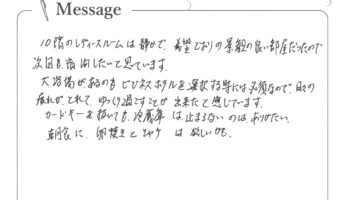 Message
10階のレディースルームは静かで、希望どおりの景観の良い部屋だったので
次回も宿泊したいと思っています。
大浴場があるのもビジネスホテルを選択する時には必須なので、日々の
疲れがとれて、ゆっくり過ごすことが出来たと感じています。
カードキーを抜いても、冷蔵庫は止まらないのはありがたい。
朝食に、卵焼きとシャケは欲しいかも。